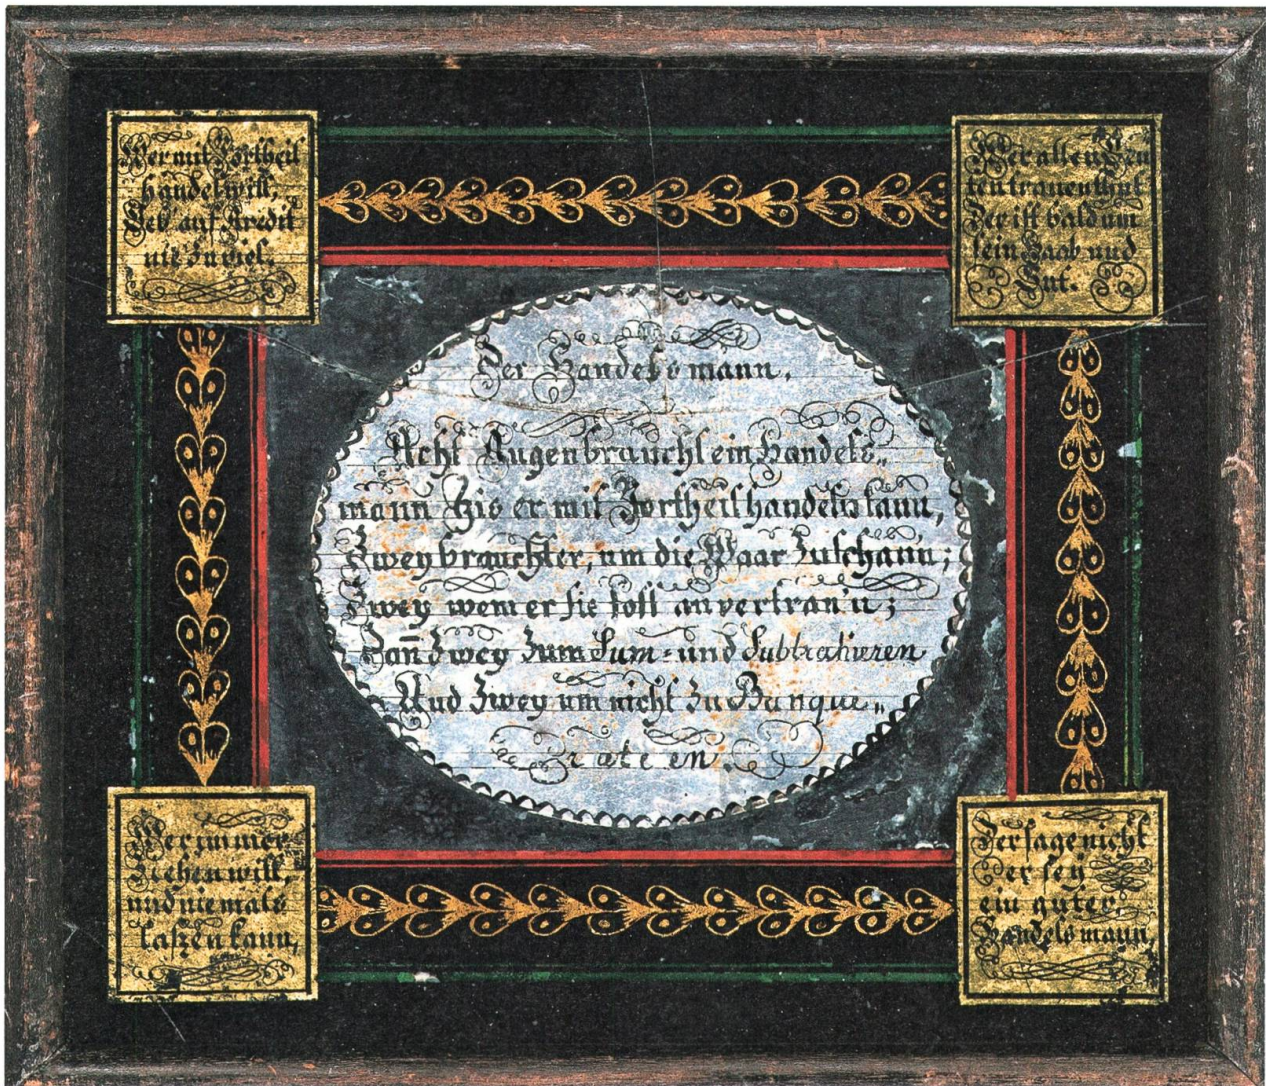 Wer mit Vortheil
handel will,
Geb auf Kredit
nie zu viel.
Wer allen Leu
ten trauen thut
Der ist bald um
sein Haab und
Gut.
Der Handelsmann.
Acht Augen braucht ein Handels„
mann Bis er mit Vortheil handeln kann,
Zwey braucht er, um die Waar zu schaun;
Zwey wem er sie soll anvertrau'n;
Dan̄ Zwey zum Sum- und Subtrahieren
Und Zwey um nicht zu Banque„
rotieren.
Wer immer
Ziehen will,
und niemals
laßen kann,
Der sage nicht
er sey
ein guter
Handelsmann,